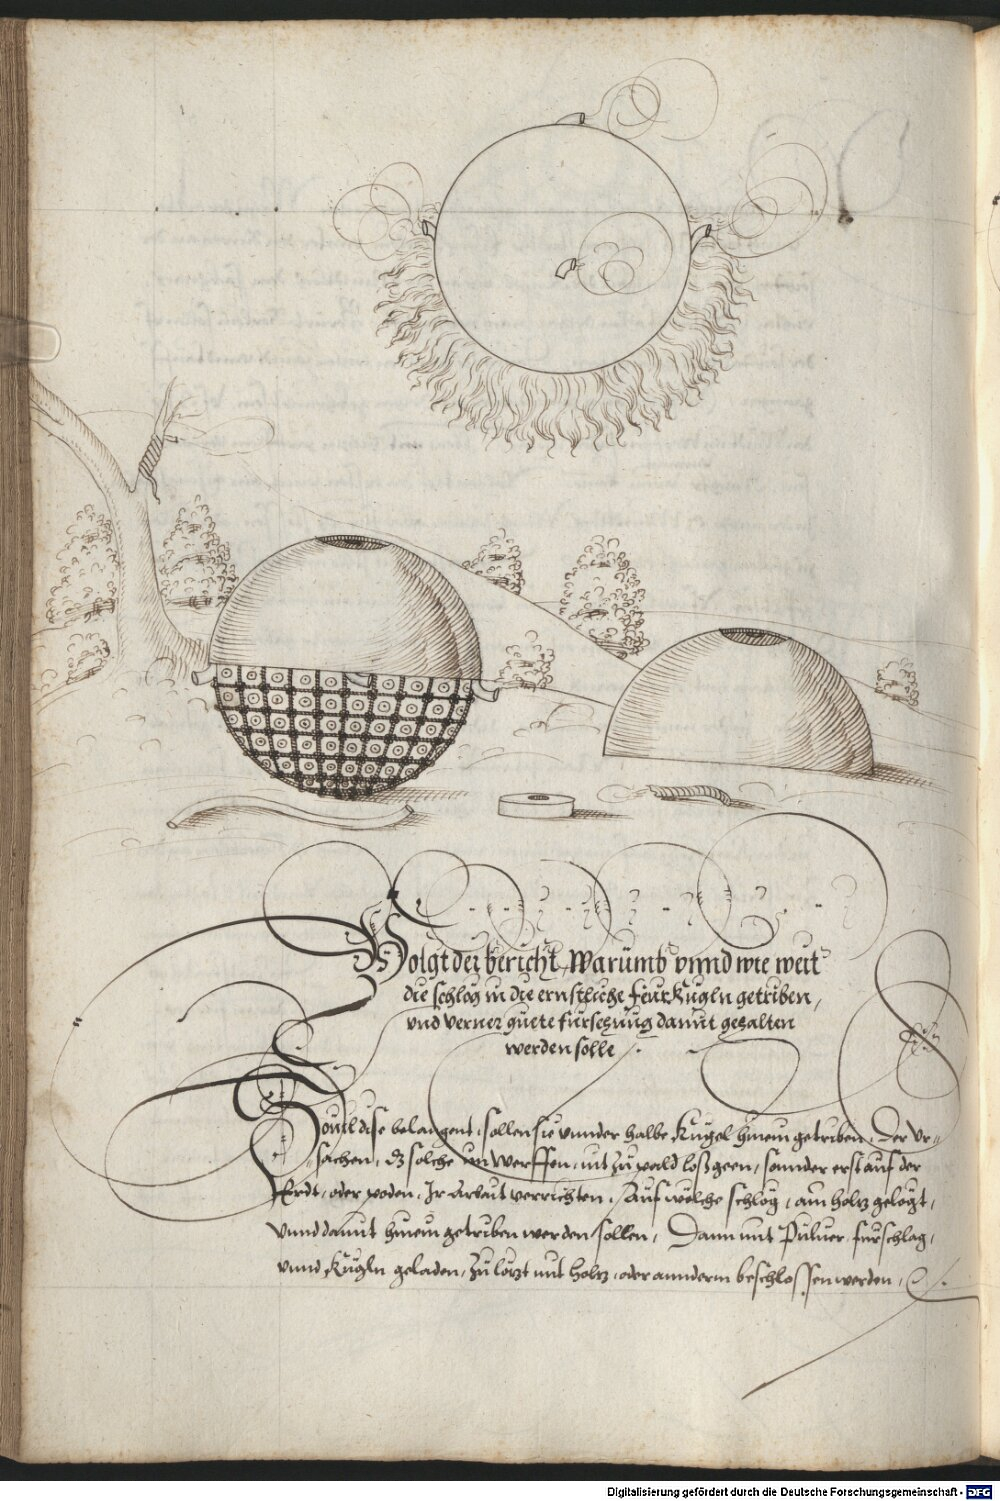 Volgt der bericht, Warumb vnnd wie weit
die schlög in die ernstliche Feur Kugln getriben,
vnd verner guete fürsehung damit gehalten
werden solle
Souil dise belangent, sollen sie vnnder halbe Kugel hinein getriben, Der Vr=
sachen, dz solche im werffen, nit zu pald loß geen, sonnder erst auf der
Erdt, oder poden, Ir Arbait verrichten, Auf wölche schlög, ain holtz gelegt,
vnnd damit hinein getriben werden sollen, Dann mit Puluer fürschlag,
vnnd Kugln geladen, zu lötzt mit holtz, oder annderm beschlossen werden,
Digitalisierung gefördert durch die Deutsche Forschungsgemeinschaft - DFG